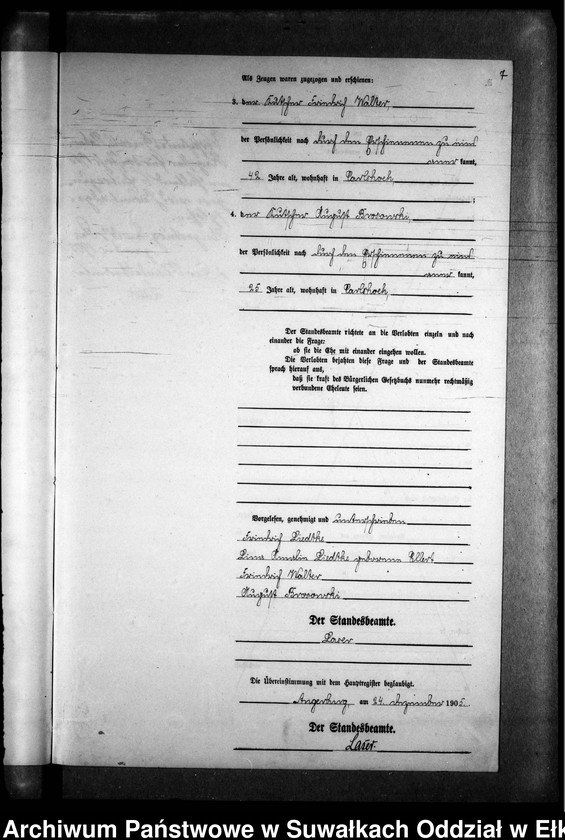 7
Als Zeugen waren zugezogen und erschienen:
3. der Kutscher Friedrich Walter,
der Persönlichkeit nach durch den
kannt,
42 Jahre alt, wohnhaft in Carlshoch,
;
4. der Kutscher August Borowski,
der Persönlichkeit nach durch den
kannt,
25 Jahre alt, wohnhaft in Carlshoch,
Der Standesbeamte richtete an die Verlobten einzeln und nach
einander die Frage:
ob sie die Ehe mit einander eingehen wollen.
Die Verlobten bejahten diese Frage und der Standesbeamte
sprach hierauf aus,
daß sie kraft des Bürgerlichen Gesetzbuchs nunmehr rechtmäßig
verbundene Eheleute seien.
Vorgelesen, genehmigt und unterschrieben
Friedrich Liedtke
Amalie Liedtke geborene Ellert
Friedrich Walter
August Borowski
Der Standesbeamte.
Laser
Die Übereinstimmung mit dem Hauptregister beglaubigt.
Angerburg, am 24. Dezember 1905.
Der Standesbeamte.
Laser.
Archiwum Państwowe w Suwałkach Oddział w Ełk